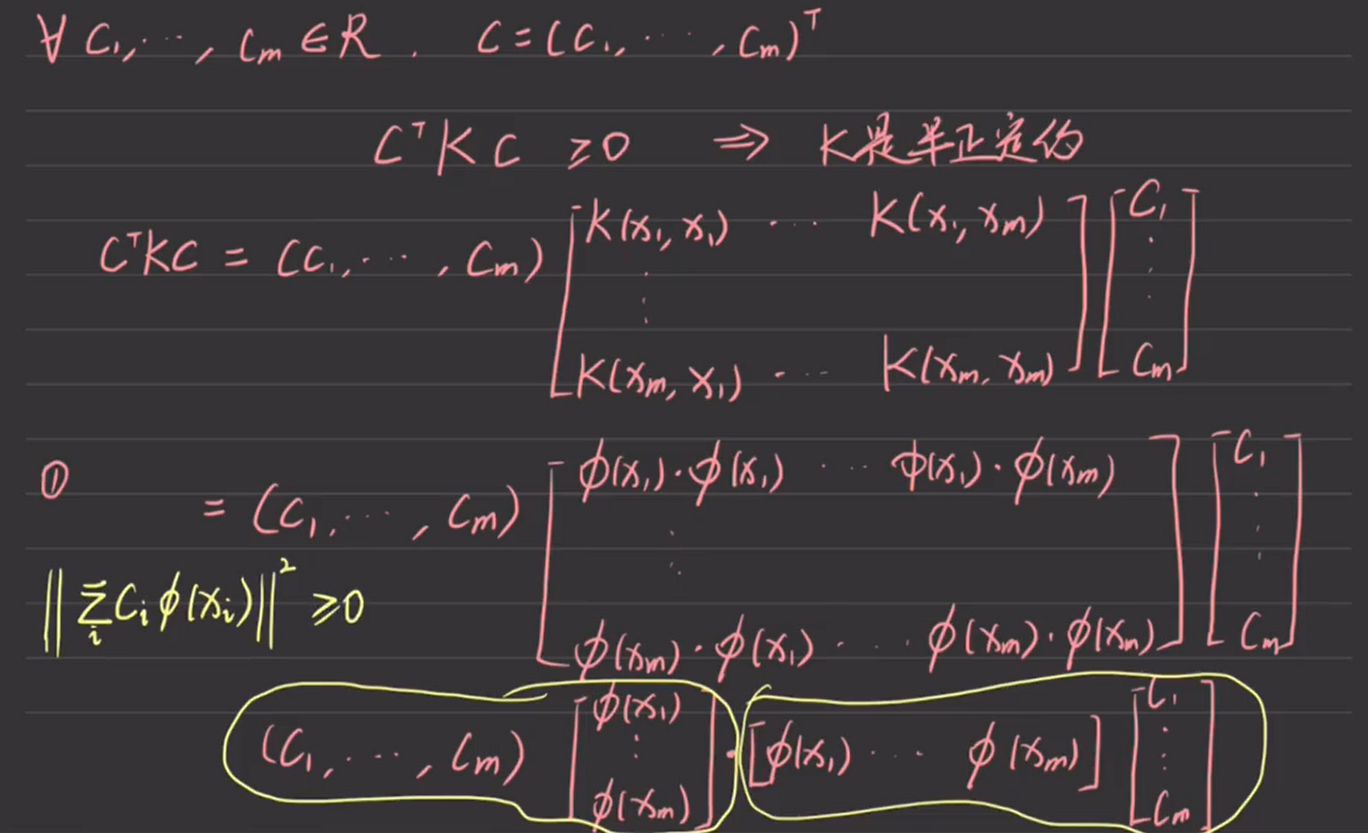 ∀ C₁, ⋯, Cₘ ∈ R. C = (C₁, ⋯, Cₘ)ᵀ
CᵀKC ≥0 ⇒ K是半正定的
CᵀKC = (C₁, ⋯, Cₘ) [K(x₁, x₁) ⋯ K(x₁, xₘ) ⋮ K(xₘ, x₁) ⋯ K(xₘ, xₘ)] [C₁ ⋮ Cₘ]
① = (C₁, ⋯, Cₘ) [ϕ(x₁)·ϕ(x₁) ⋯ ϕ(x₁)·ϕ(xₘ) ⋮ ϕ(xₘ)·ϕ(x₁) ⋯ ϕ(xₘ)·ϕ(xₘ)] [C₁ ⋮ Cₘ]
‖∑ᵢ Cᵢ ϕ(xᵢ)‖² ≥0
(C₁, ⋯, Cₘ) [ϕ(x₁) ⋮ ϕ(xₘ)] · [ϕ(x₁) ⋯ ϕ(xₘ)] [C₁ ⋮ Cₘ]